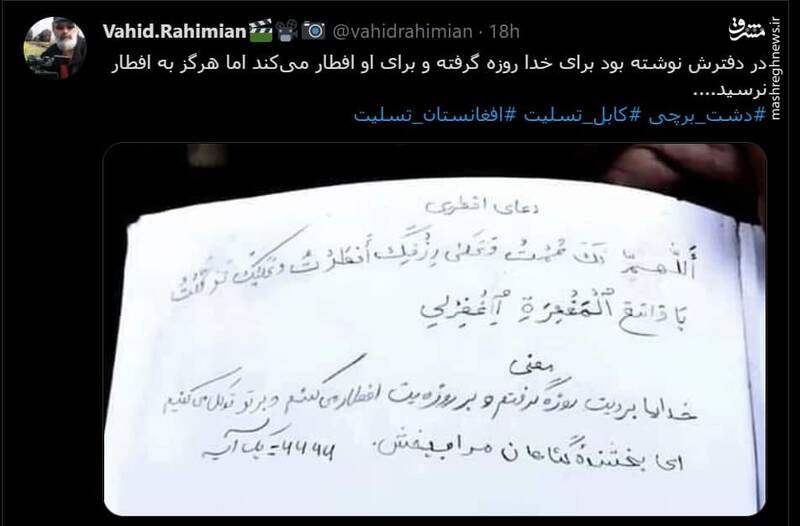 Vahid.Rahimian @vahidrahimian · 18h
مشرق
mashreghnews.ir
در دفترش نوشته بود برای خدا روزه گرفته و برای او افطار می‌کند اما هرگز به افطار
نرسید....
#دشت_برچی #کابل_تسلیت #افغانستان_تسلیت
دعای افطاری
أللهم لک صمت وعلی رزقک أفطرت وعلیک توکلت
یا واسع المغفرة إغفرلی
معنی
خدایا بردیت روزه گرفتم و بر روزه‌یت افطار می‌کنم و بر تو توکل می‌کنیم
ای بخشندهٔ گناهان مرا ببخش.